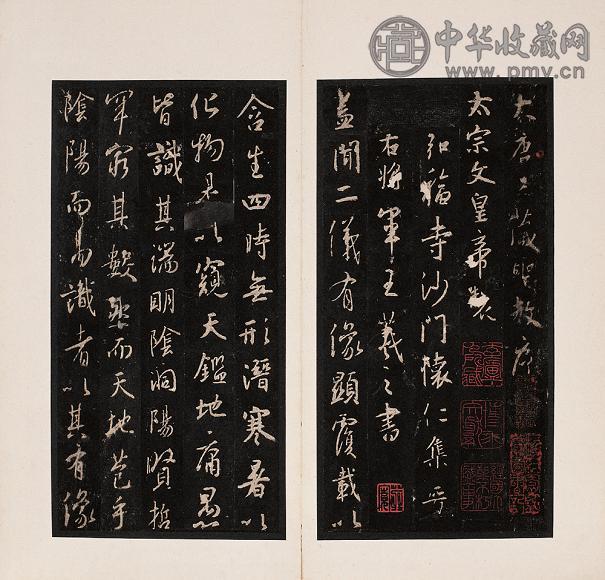 中华收藏网
www.pmv.cn
大唐三藏聖教序
太宗文皇帝製
弘福寺沙門懷仁集晉
右將軍王羲之書
蓋聞二儀有像顯覆載以
含生四時無形潛寒暑以
化物是以窺天鑑地庸愚
皆識其端明陰洞陽賢哲
罕窮其數然而天地苞乎
陰陽而易識者以其有像